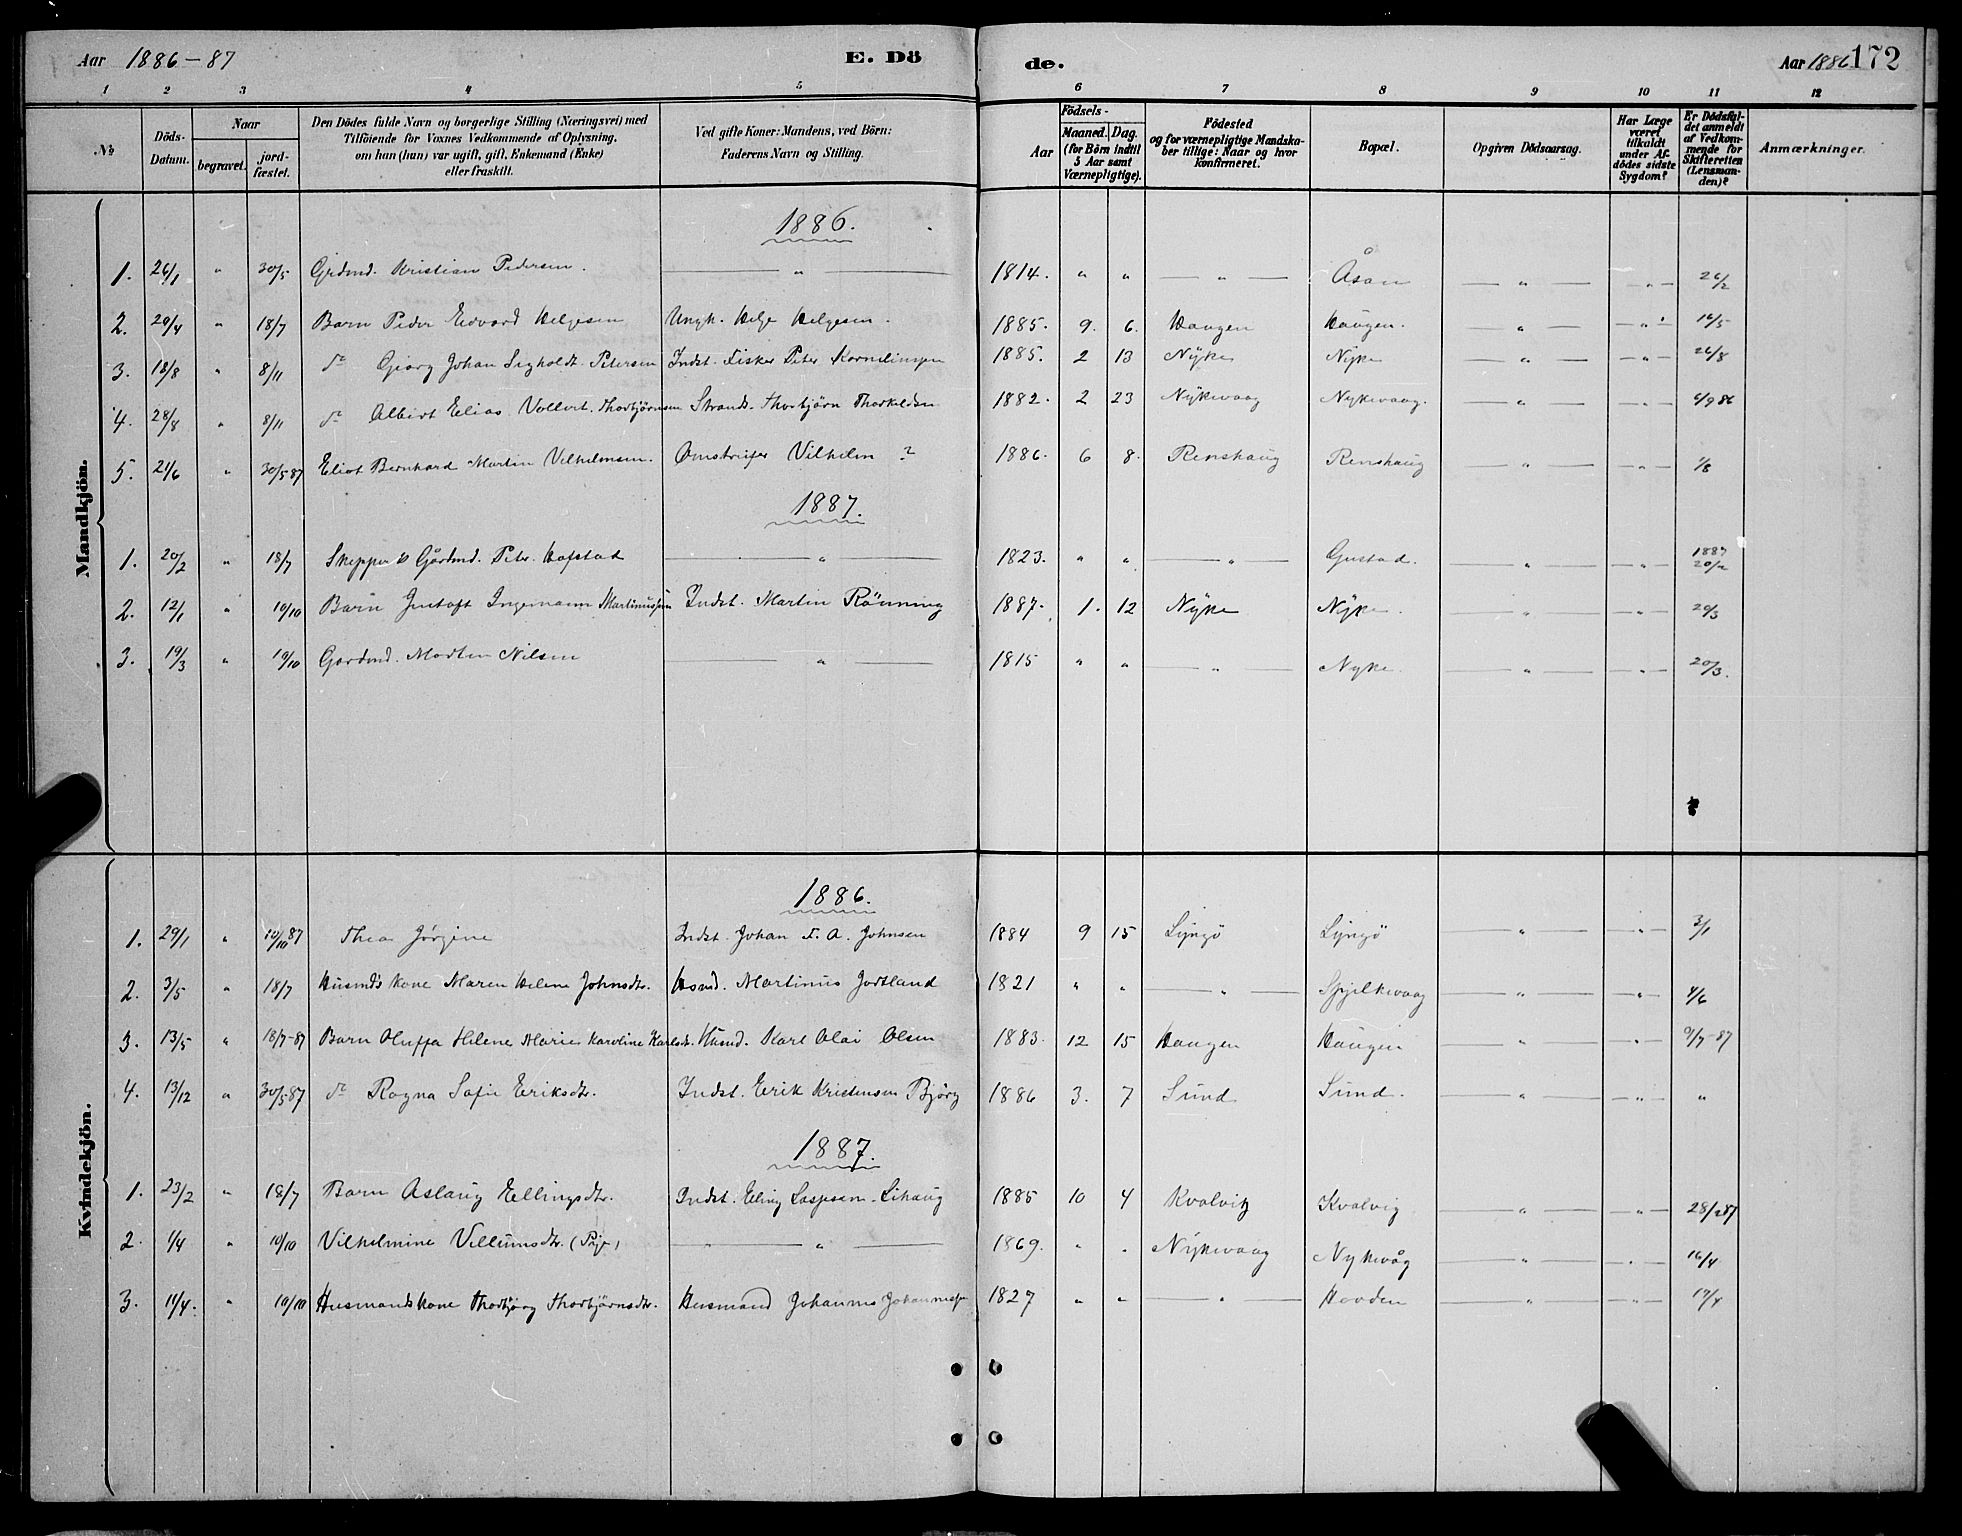 Aar 1886-87 E. Dö de. Aar 1886 172
1 2 3 4 5 6 7 8 9 10 11 12
№
Döds-Datum.
Naar
begravet.
jord-fæstet.
Den Dödes fulde Navn og borgerlige Stilling (Næringsvei) med
Tilföiende for Voxnes Vedkommende af Oplysning,
om han (hun) var ugift, gift, Enkemand (Enke)
eller fraskilt.
Ved gifte Koner: Mandens, ved Börn:
Faderens Navn og Stilling.
Födsels-
Aar
Maaned. Dag.
(for Börn indtil
5 Aar samt
Værnepligtige).
Födested
og for værnepligtige Mandska-
ber tillige: Naar og hvor
konfirmeret.
Bopæl.
Opgiven Dödsaarsag.
Har Læge
været
tilkaldt
under Af-
dödes sidste
Sygdom?
Er Dödsfal-
det anmeldt
af Vedkom-
mende for
Skifteretten
(Lensman-
den)?
Anmærkninger.
Mandkjön.
1886.
1. 26/1 " 30/5 Grdmd. Kristian Pedersen. — " — 1814. " " — " — Åsan — " — — " — 26/2
2. 29/4 " 18/7 Barn Peder Edvard Helgesen Ungk. Helge Helgesen. 1885. 9. 6. Haugen Haugen. — " — — " — 16/5
3. 18/8 " 8/11 do Georg Johan Sigholdt Petersen Indst. Fisker Peter Korneliussen 1885. 2 13 Nyke Nyke — " — — " — 26/8
4. 28/8 " 8/11 do Albert Elias Vollert Thorbjørnsen Strands. Thorbjörn Thorkildsen 1882. 2 23 Nykevaag Nykevaag. — " — — " — 6/9 86
5. 21/6 " 30/5 87 Eliot Bernhard Martin Vilhelmsen. Omstreifer Vilhelm ? 1886. 6 8. Renshaug Renshaug — " — — " — 1/8
1887.
1. 20/2 " 18/7 Skipper & Gårdmd. Peter Hofstad — " — 1823. " " — " — Gustad. — " — — " — 1887
2. 12/1 " 10/10 Barn Gustaft Ingemann Martinussen Indst. Martin Rönning 1887. 1. 12 Nyke Nyke. — " — — " — 20/3
3. 19/3 " 10/10 Gardmd. Morten Nilsen — " — 1815 " " — " — Nyke. — " — — " — 20/3.
Kvindekjön.
1886.
1. 29/1 " 10/10 87 Thea Jørgine Indst. Johan F. A. Johnsen 1884 9 15 Lyngö Lyngö — " — — " — 3/1
2. 3/5 " 18/7 Husmds kone Maren Helene Johnsdtr. Hsmd. Martinus Jortland 1821 " " — " — Spjelkevaag — " — — " — 4/6
3. 13/5 " 18/7-87 Barn Oluffa Helene Marie Karoline Karlsdtr. Husmd. Karl Olai Olsen 1883. 12 15 Haugen Haugen — " — — " — 9/7-87
4. 13/12 " 30/5 87 do Ragna Sofie Eriksdtr. Indst. Erik Kristensen Bjørg 1886 3. 7 Sund Sund. — " — — " — "
1887.
1. 23/2 " 18/7 Barn Aslaug Ellingsdtr. Indst. Elling Caspersen Lihaug 1885 10 4 Kvalvik Kvalvig — " — — " — 28/2 87
2. 1/4 " 10/10 Vilhelmine Villumsdtr. (Pige) — " — 1869. " " Nykevaag Nykvåg — " — — " — 16/4
3. 11/4. " 10/10 Husmandskone Thorbjørg Thorbjørnsdtr. Husmand Johannes Johannessen 1827 " " — " — Hovden — " — — " — 17/4